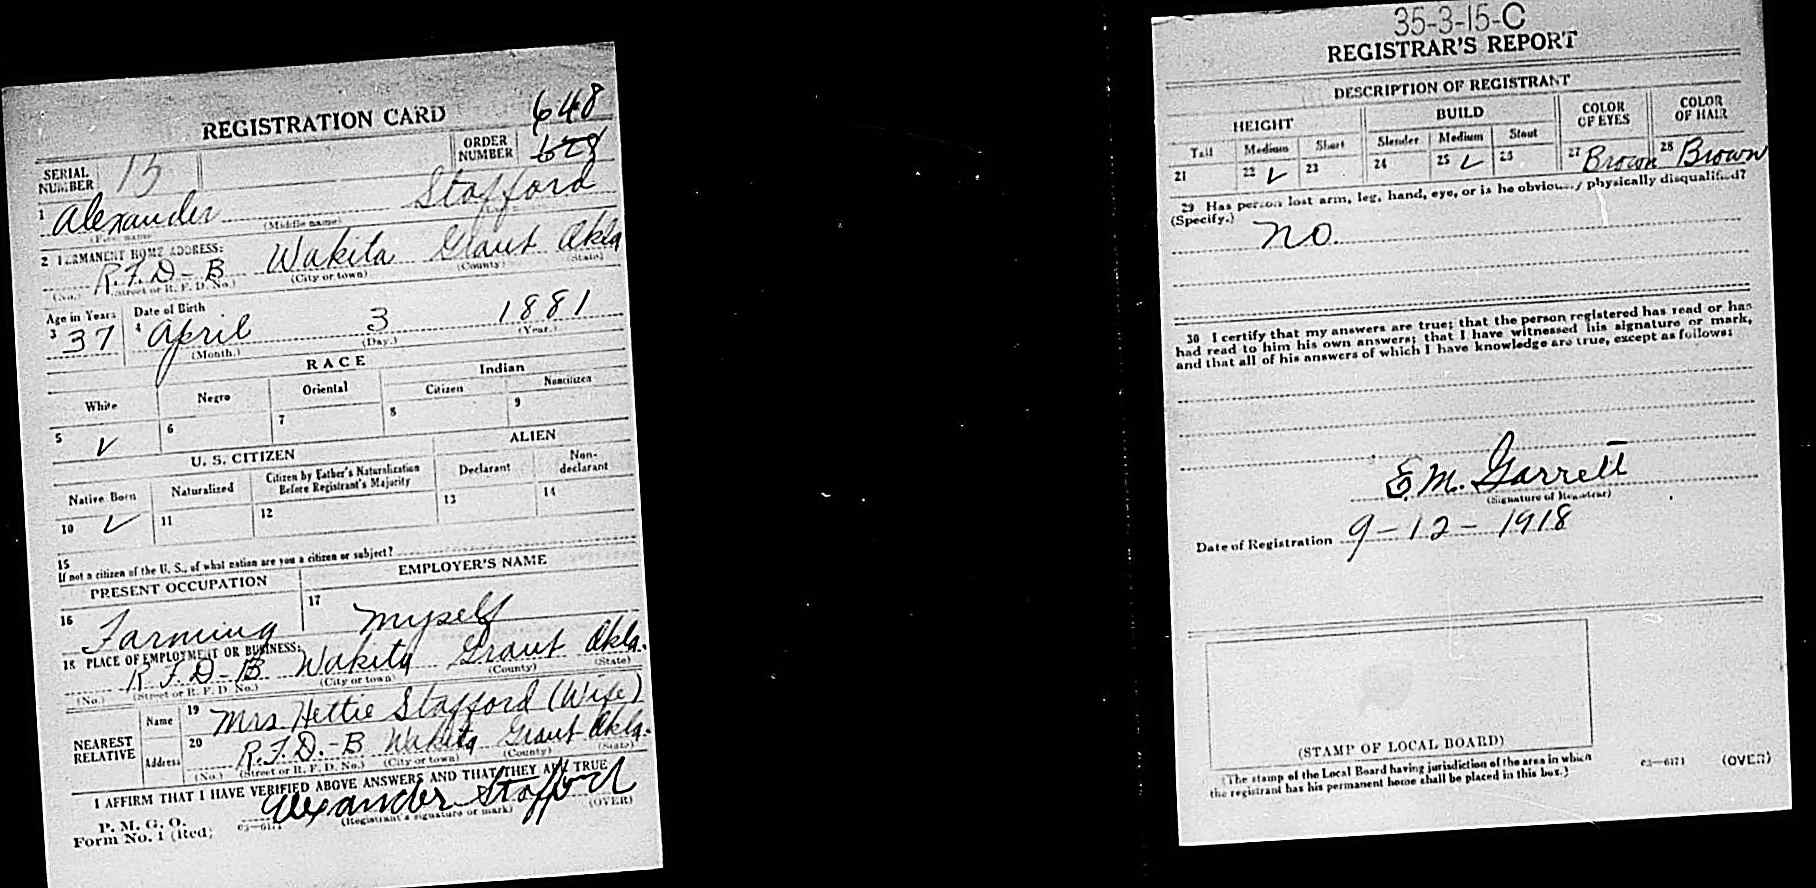 REGISTRATION CARD
SERIAL NUMBER 15 ORDER NUMBER 648
1 Alexander Stafford
(First name) (Middle name)
2 PERMANENT HOME ADDRESS:
R.F.D-B Wakita Grant Okla
(No.) (Street or R. F. D. No.) (City or town) (County) (State)
Age in Years Date of Birth
3 37 4 April 3 1881
(Month.) (Day.) (Year.)
RACE
White Negro Oriental Indian
Citizen Noncitizen
5 ✓ 6 7 8 9
U. S. CITIZEN ALIEN
Native Born Naturalized Citizen by Father's Naturalization Before Registrant's Majority Declarant Non-declarant
10 ✓ 11 12 13 14
15
If not a citizen of the U. S., of what nation are you a citizen or subject?
PRESENT OCCUPATION EMPLOYER'S NAME
16 Farming 17 Myself
18 PLACE OF EMPLOYMENT OR BUSINESS:
R.F.D-B Wakita Grant Okla.
(No.) (Street or R. F. D. No.) (City or town) (County) (State)
NEAREST RELATIVE
Name 19 Mrs Hettie Stafford (Wife)
Address 20 R.F.D.-B Wakita Grant Okla.
(No.) (Street or R. F. D. No.) (City or town) (County) (State)
I AFFIRM THAT I HAVE VERIFIED ABOVE ANSWERS AND THAT THEY ARE TRUE
Alexander Stafford
P. M. G. O.
Form No. 1 (Red) 03—6171 (Registrant's signature or mark) (OVER)
35-3-15-C
REGISTRAR'S REPORT
DESCRIPTION OF REGISTRANT
HEIGHT BUILD COLOR OF EYES COLOR OF HAIR
Tall Medium Short Slender Medium Stout
21 22 ✓ 23 24 25 ✓ 26 27 Brown 28 Brown
29 Has person lost arm, leg, hand, eye, or is he obviously physically disqualified?
(Specify.) No
30 I certify that my answers are true; that the person registered has read or has
had read to him his own answers; that I have witnessed his signature or mark,
and that all of his answers of which I have knowledge are true, except as follows:
E.M. Garrett
(Signature of Registrar)
Date of Registration 9-12-1918
(STAMP OF LOCAL BOARD)
(The stamp of the Local Board having jurisdiction of the area in which
the registrant has his permanent home shall be placed in this box.)
03—6171 (OVER)